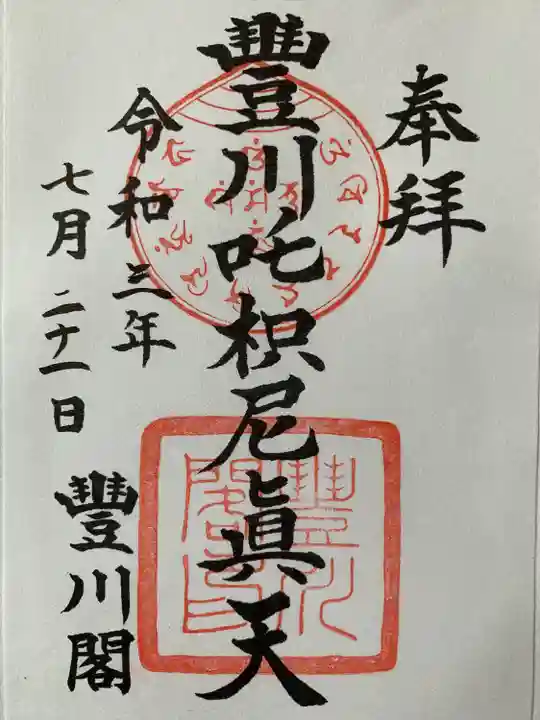 奉拜
豐川吒枳尼眞天
令和三年
七月二十一日
豐川閣
豐川
閣印